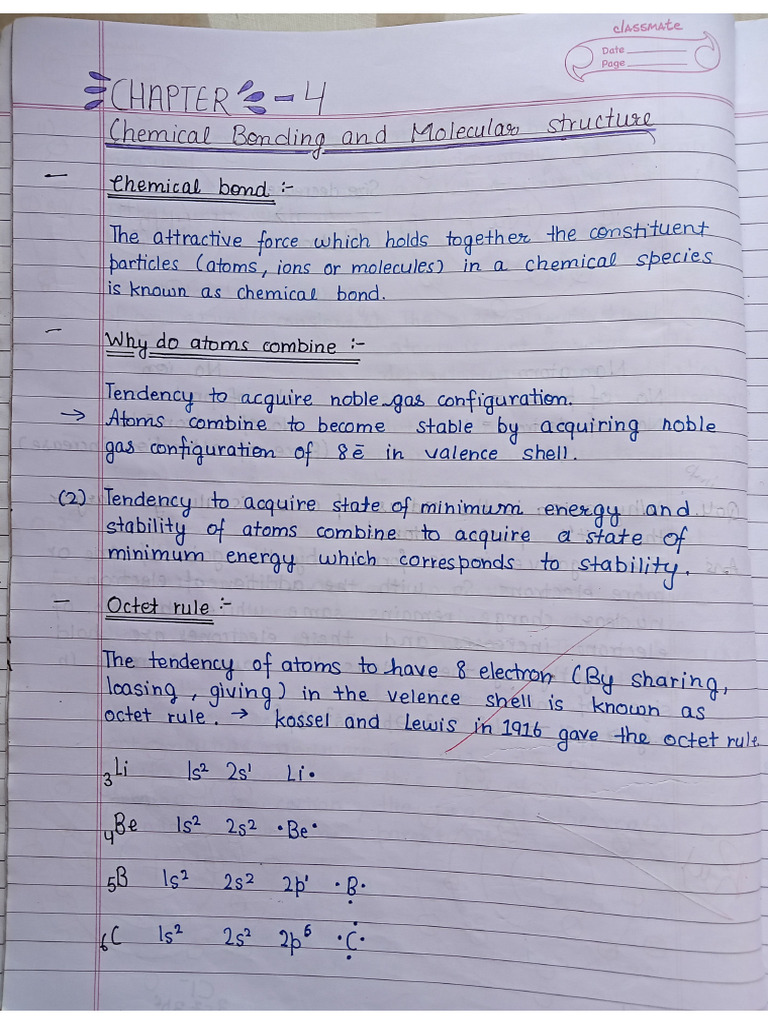 classmate
Date
Page
CHAPTER - 4
Chemical Bonding and Molecular structure
- Chemical bond :-
The attractive force which holds together the constituent
particles (atoms, ions or molecules) in a chemical species
is known as chemical bond.
- Why do atoms combine :-
Tendency to acquire noble gas configuration.
→ Atoms combine to become stable by acquiring noble
gas configuration of 8ē in valence shell.
(2) Tendency to acquire state of minimum energy and
stability of atoms combine to acquire a state of
minimum energy which corresponds to stability.
- Octet rule :-
The tendency of atoms to have 8 electron (By sharing,
loasing, giving) in the velence shell is known as
octet rule. → kossel and Lewis in 1916 gave the octet rule
₃Li 1s² 2s¹ Li•
₄Be 1s² 2s² •Be•
₅B 1s² 2s² 2p¹ •B•
₆C 1s² 2s² 2p⁶ •C•